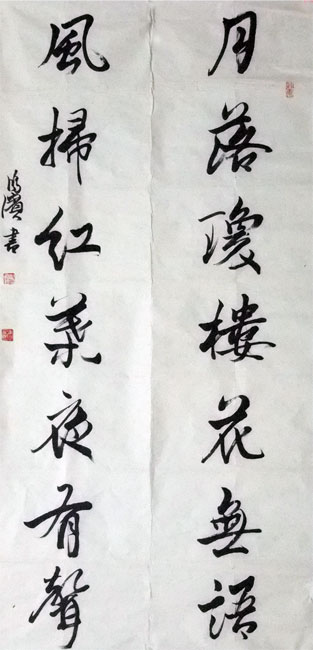 月落瓊樓花無語
風掃紅葉夜有聲
濱書